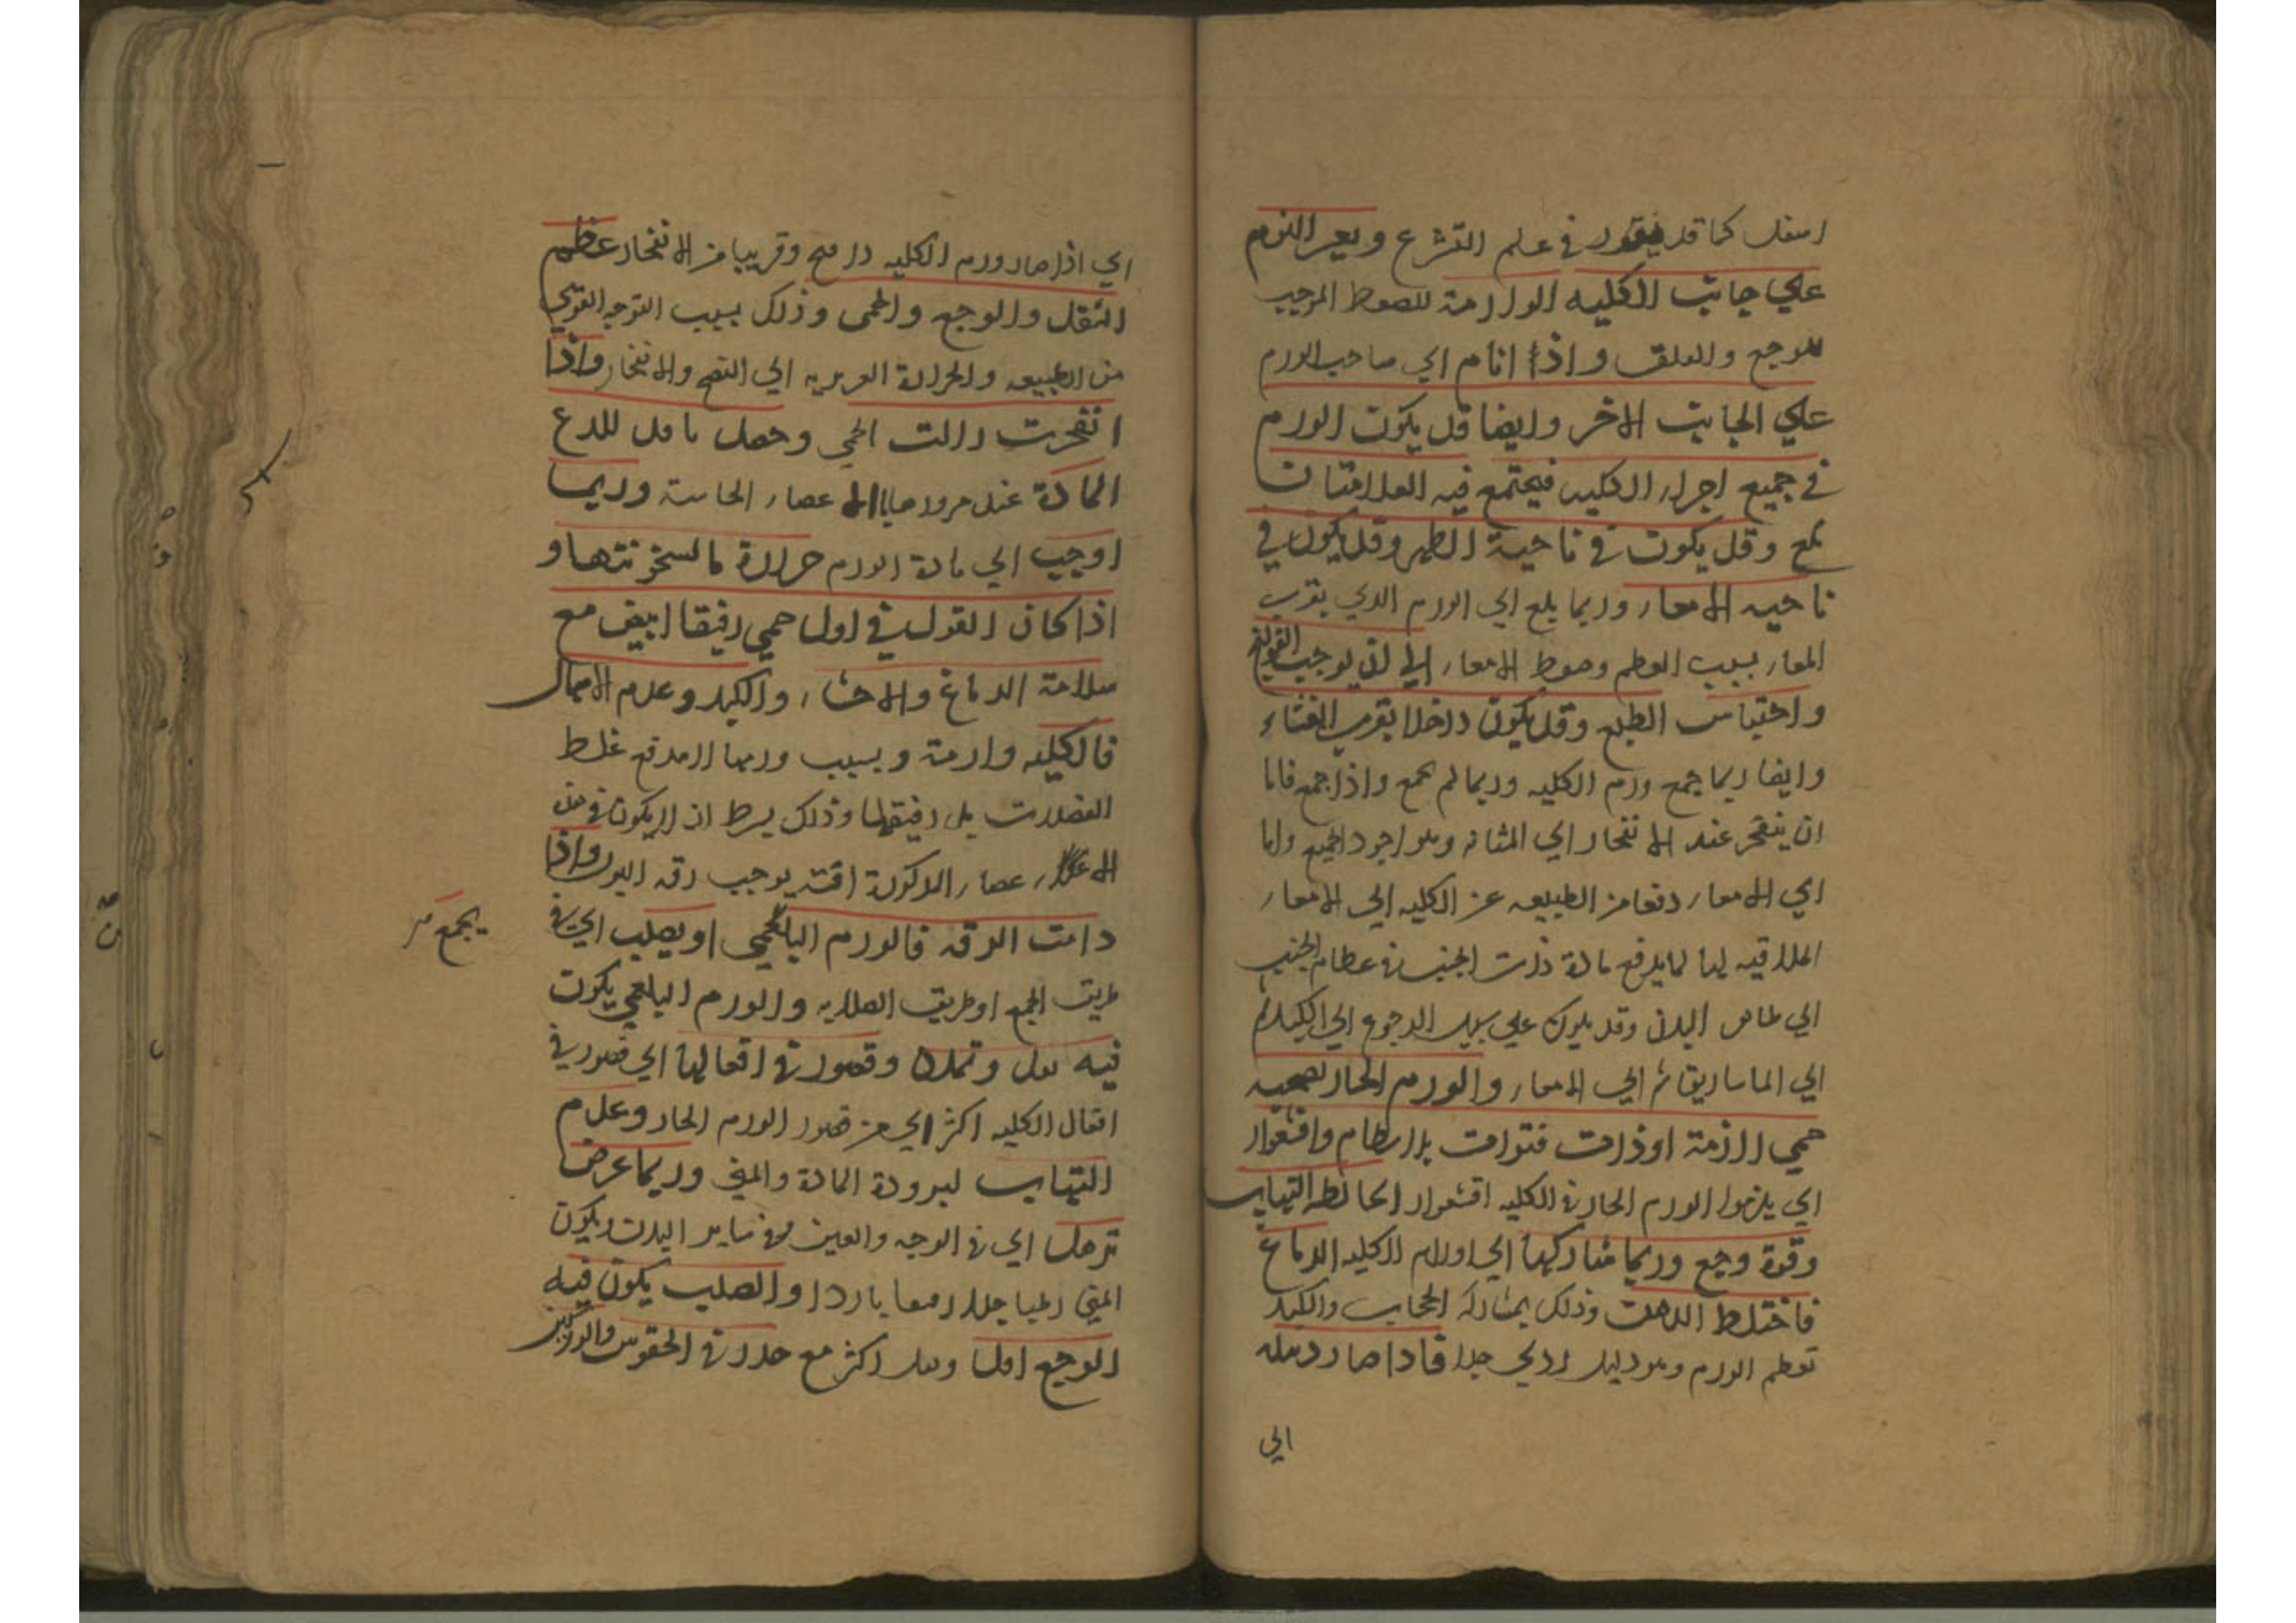 اسفل كما قد في علم التشرع ويعسر النوم
علي جانب الكليه الوارمة للضغط الموجب
للوجع والعلق واذا انام اي صاحب الورم
علي الجانب الاخر وايضا قد يكون الورم
في جميع اجزاء الكليه فيجتمع فيه العلامتان
مع وقد يكون في ناحية الظهر وقد يكون في
ناحيه الامعاء وربما بلغ اي الورم الذي بقرب
المعاء بسبب العظم وضغط الامعاء الي ان يوجب القولنج
واحتباس الطبع وقد يكون داخلا بقرب الغشاء
وايضا ربما جمع ورم الكليه وربما لم يجمع واذا جمع فاما
ان ينفجر عند الانفجار الي المثانه وهو اجود الجميع واما
الي الامعاء دفعا من الطبيعه عن الكليه الي الامعاء
الملاقيه لها كما يدفع مادة ذات الجنب في عظام الجنب
الي ظاهر البدن وقد يكون علي سبيل الرجوع الي الكبد ثم
الي الماساريقا ثم الي الامعاء والورم الحار يصحبه
حمي لازمة او ذات فترات بلا نظام واقشعرار
اي يلزموا الورم الحار في الكليه اقشعرار الحا التهاب
وقوة وجع وربما شاركها اي اورام الكليه الدماغ
فاختلط الذهن وذلك بمشاركه الحجاب والكبد
تعظم الورم وهو دليل ردي جدا فاذا صار دبيله
الي
اي اذا صار ورم الكليه وقريبا من الانفجار عظم
الثقل والوجع والحمى وذلك بسبب التوجه القوي
من الطبيعه والحرارة الغريزيه الي النضج والانفجار واذا
انفجرت زالت الحمي وحصل للدع
المادة عند مرورها بالاعضاء الحاسة وربما
اوجب اي مادة الورم حرارة ما لسخونتها و
اذا كان القول في اول حمي رقيقا ابيض مع
سلامة الدماغ والاحشاء والكبد وعدم الاسهال
فالكليه وارمة وبسبب ورمها لا يدفع غلظ
الفضلات بل رقيقها وذلك بشرط ان لا يكون في
الاعضاء المذكورة افته يوجب رقه البول واذا
دامت الرقه فالورم البلغمي او يصلب اي في
يجمع
طريق الجمع او طريق الصلابه والورم البلغمي يكون
فيه ثقل وتمدد وقصور في افعالها اي قصور في
افعال الكليه اكثر اي من قصور الورم الحار وعدم
التهاب لبرودة المادة والمني وربما عرض
ترهل اي في الوجه والعين وفي ساير البدن ويكون
المني رطبا جدا رقيقا باردا والصلب يكون فيه
الوجع اقل وثقل اكثر مع خدر في الحقوين والوركين